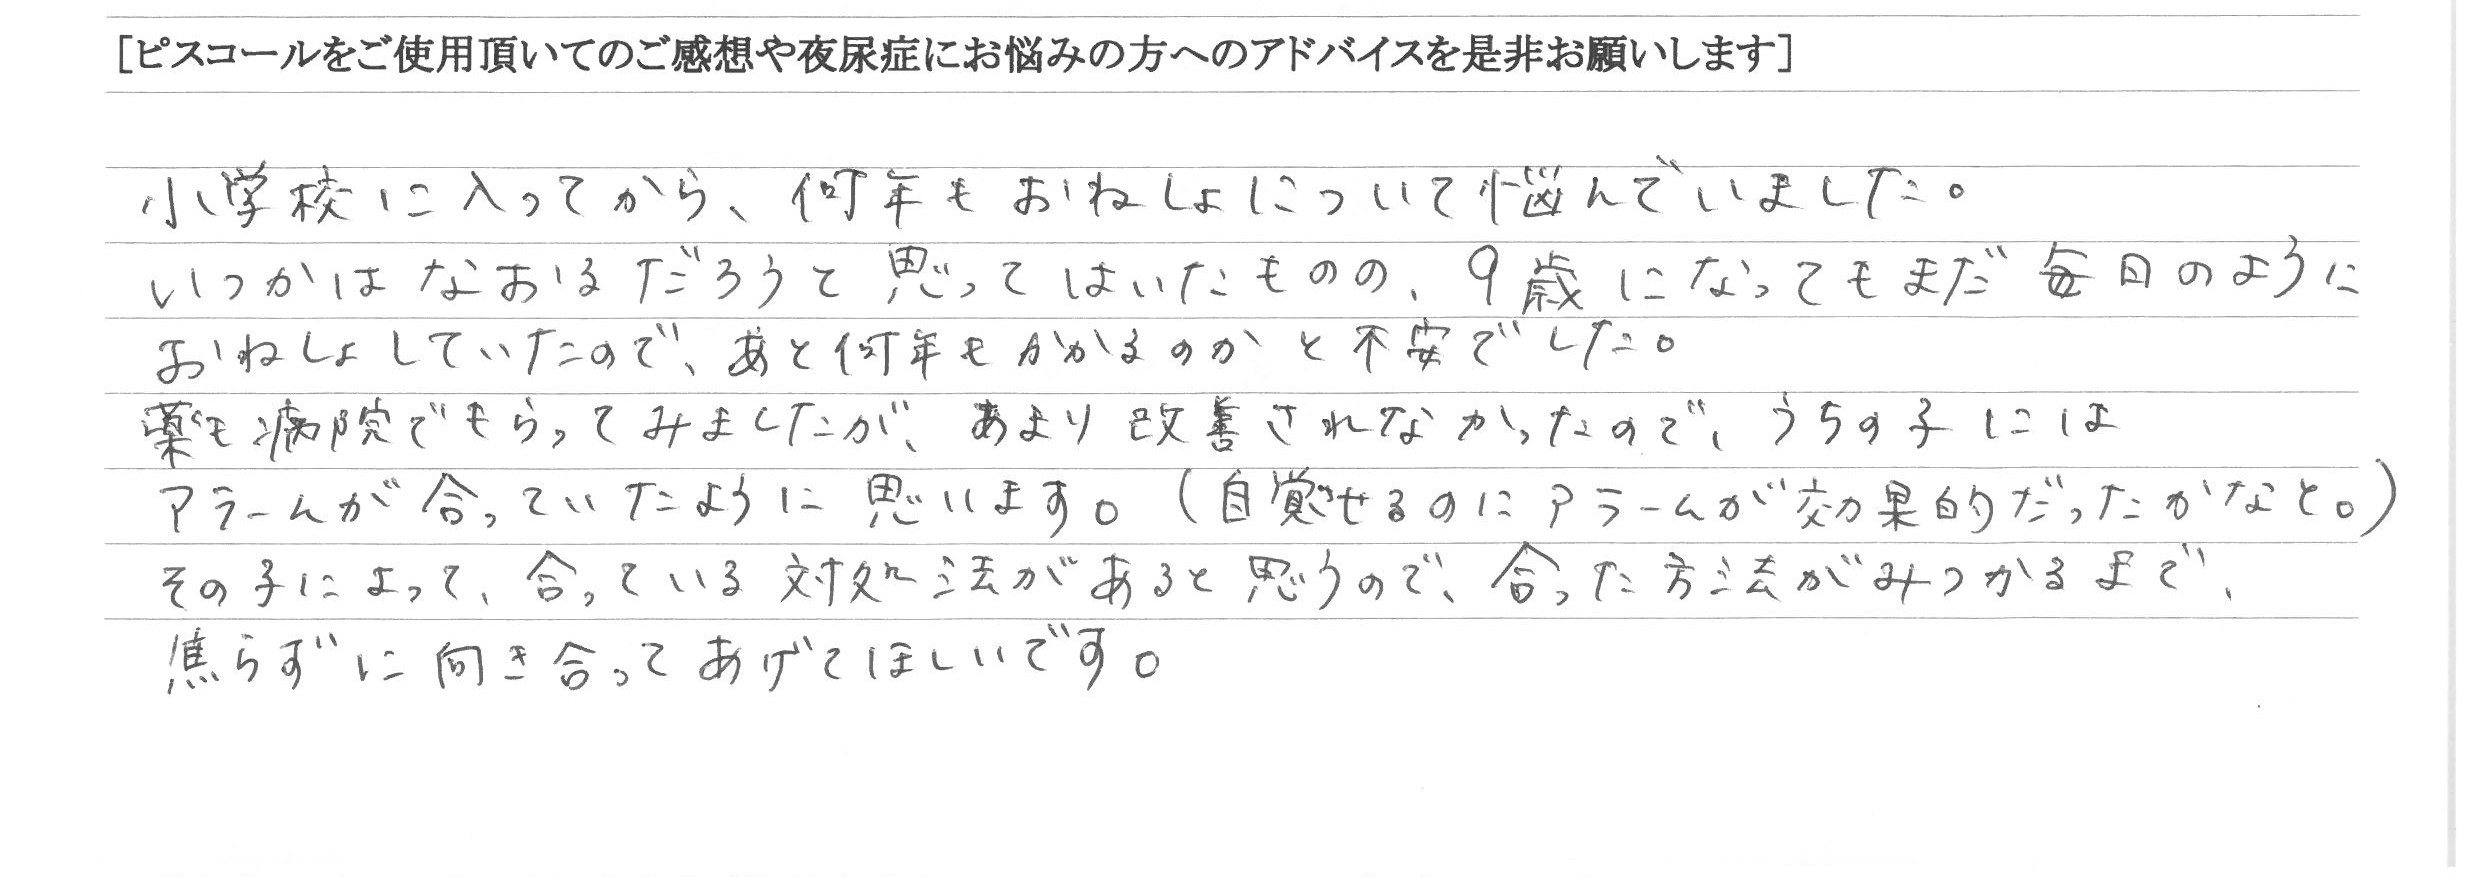 [ピスコールをご使用頂いてのご感想や夜尿症にお悩みの方へのアドバイスを是非お願いします]
小学校に入ってから、何年もおねしょについて悩んでいました。
いつかはなおるだろうと思ってはいたものの、9歳になってもまだ毎日のように
おねしょしていたので、あと何年もかかるのかと不安でした。
薬も病院でもらってみましたが、あまり改善されなかったので、うちの子には
アラームが合っていたように思います。(自覚させるのにアラームが効果的だったかなと。)
その子によって、合っている対処法があると思うので、合った方法がみつかるまで、
焦らずに向き合ってあげてほしいです。